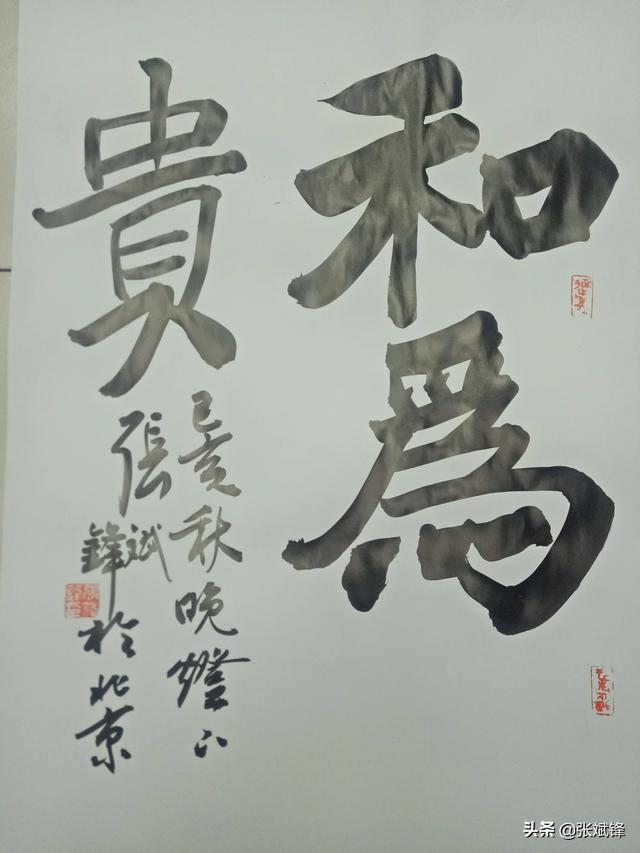 和為
貴
己亥秋晚燈下
張斌鋒於北京
头条 @张斌锋